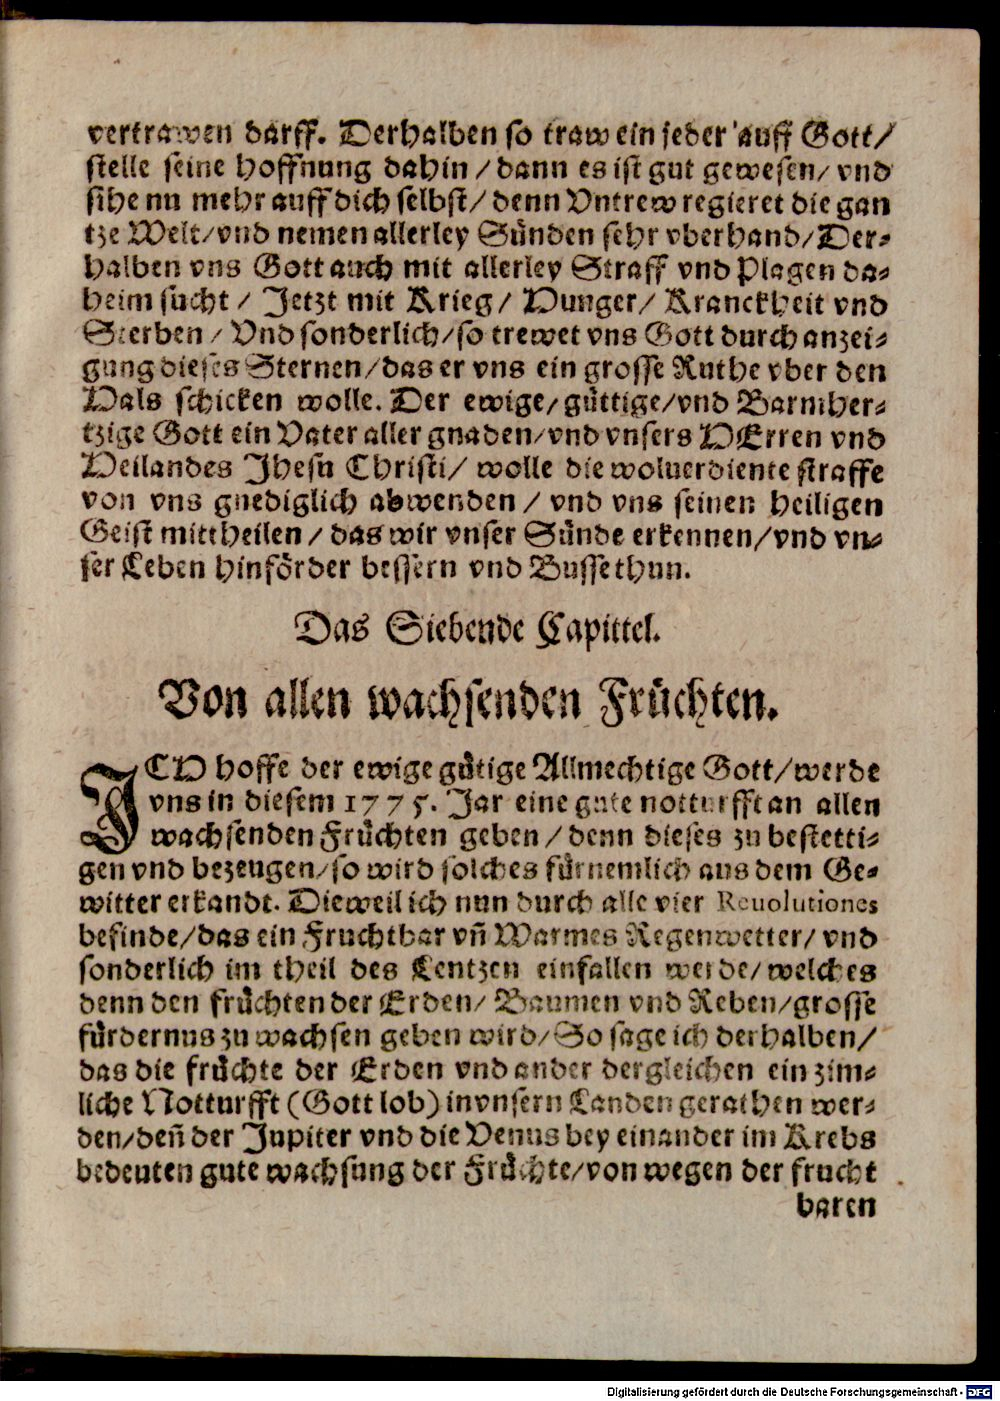 vertrawen darff. Derhalben so traw ein jeder auff Gott/
stelle seine hoffnung dahin/dann es ist gut gewesen/vnd
sihe nu mehr auff dich selbst/denn Vntrew regieret die gan
tze Welt/vnd nemen allerley Suͤnden sehr vberhand/Der⸗
halben vns Gott auch mit allerley Straff vnd Plagen da⸗
heim sucht/Jetzt mit Krieg/Hunger/Kranckheit vnd
Sterben/Vnd sonderlich/so trewet vns Gott durch anzei⸗
gung dieses Sternen/das er vns ein grosse Ruthe vber den
Hals schicken wolle. Der ewige/guͤttige/vnd Barmher⸗
tzige Gott ein Vater aller gnaden/vnd vnsers HErren vnd
Heilandes Jhesu Christi/wolle die woluerdiente straffe
von vns gnediglich abwenden/vnd vns seinen heiligen
Geist mittheilen/das wir vnser Suͤnde erkennen/vnd vn⸗
ser Leben hinfoͤrder bessern vnd Busse thun.
Das Siebende Capittel.
Von allen wachsenden Fruͤchten.
JCH hoffe der ewige guͤtige Allmechtige Gott/werde
vns in diesem 1775. Jar eine gute notturfft an allen
wachsenden Fruͤchten geben/denn dieses zu bestetti⸗
gen vnd bezeugen/so wird solches fuͤrnemlich aus dem Ge⸗
witter erkandt. Dieweil ich nun durch alle vier Reuolutiones
befinde/das ein Fruchtbar vn̄ Warmes Regenwetter/vnd
sonderlich im theil des Lentzen einfallen werde/welches
denn den fruͤchten der Erden/Baumen vnd Reben/grosse
fuͤrdernus zu wachsen geben wird/So sage ich derhalben/
das die fruͤchte der Erden vnd ander dergleichen ein zim⸗
liche Notturfft (Gott lob) in vnsern Landen gerathen wer⸗
den/den̄ der Jupiter vnd die Venus bey einander im Krebs
bedeuten gute wachsung der Fruͤchte/von wegen der frucht
baren
Digitalisierung gefördert durch die Deutsche Forschungsgemeinschaft - DFG